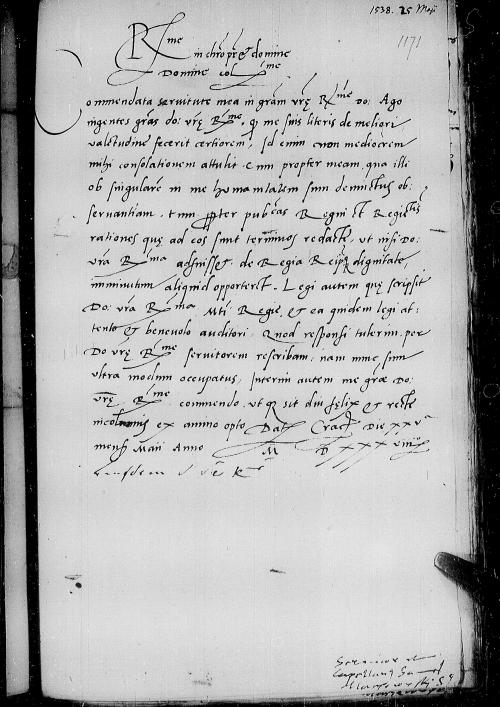 1538. 25 Maij
1171
R.me
in chro pr et domine
Domine col.me
Commendata servitute mea in gram vrę R.me Do: Ago
ingentes gras do: vrę R.me, q me suis literis de meliori
valetudine fecerit certiorem, Id enim non mediocrem
mihi consolationem attulit. Cum propter meam, qua illi
ob singularē in me humanitatem sum devinctus ob:
servantiam, tum ppter pub:cas Regni et Regis
rationes quę ad eos sunt terminos redactę, ut nisi Do:
vra R.ma adfuisset, de Regia Reipq dignitate,
imminutum aliquid oporteret. Legi autem quę scripsit
Do: vra R.ma, Mti Regię, & ea quidem legi at:
tento & benevolo auditori. Quod responsi tulerim, per
Do vrę R.me servitorem rescribam: nam nunc sum
ultra modum occupatus, Interim autem me gręe Do:
vrę R.me commendo, ut q sit diu fęlix & recte
incolumis ex animo opto Dat Crac Die xxv
mens Maii Anno M D xxxviii
Eiusdem d vę R
Servitor
Capellan